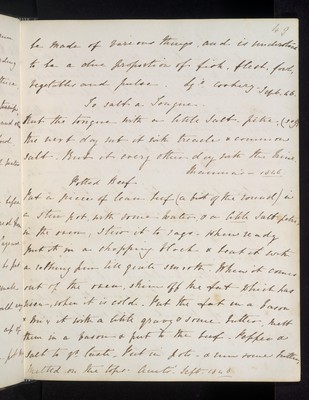 49
be made of various things, and is understood
to be a due proportion of fish, flesh, fowl,
vegetables and pulse. Cookery Sept. 46.
To salt a Tongue.
Rub the tongue with a little Salt petre.
the next day rub it with treacle & common
salt. Rub it every other day with the brine,
1846.
Potted Beef.
Put a piece of lean beef (a bit of the round) in
a stew pot with some water, & a little Salt petre,
in the oven, stew it to rags. When ready
put it on a chopping block & beat it with
a rolling pin till quite smooth. When it comes
out of the oven, skim off the fat which has
risen, when it is cold. Put the fat in a bason
& mix it with a little gravy & some butter, melt
them in a bason & put to the beef. Pepper &
salt to yr taste. Put in pots & run some butter
melted on the top. Aunt Sept.